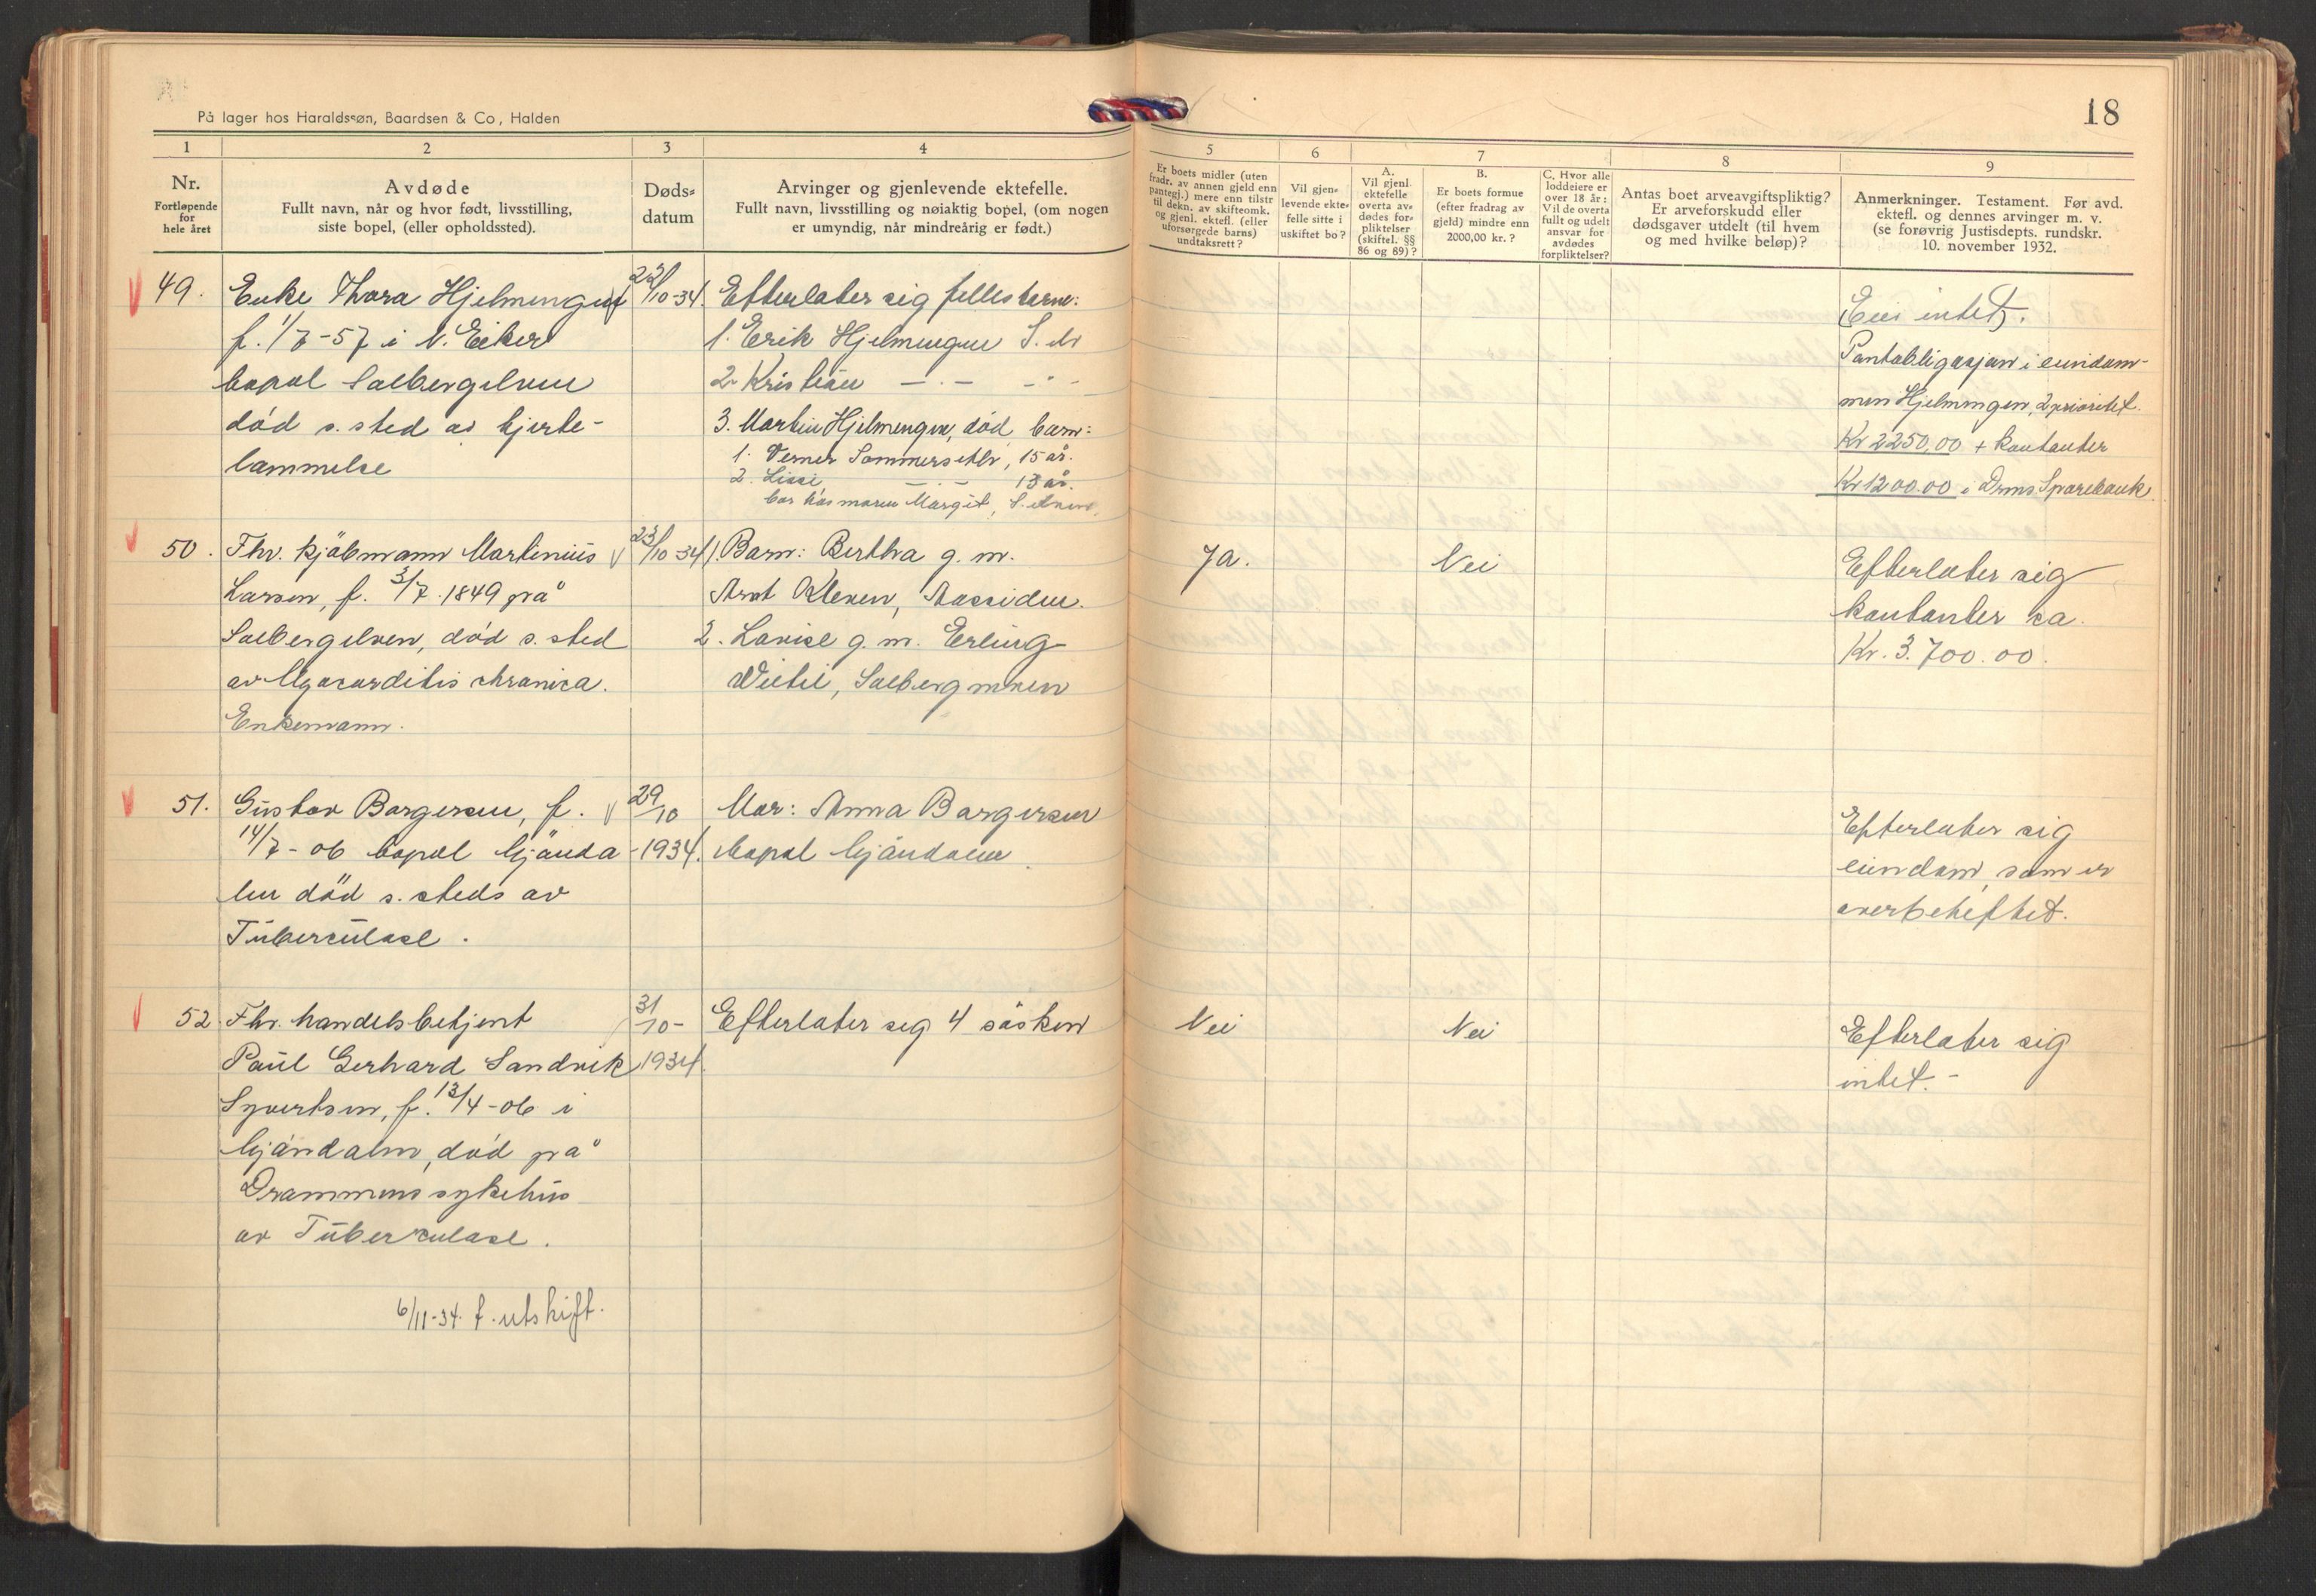 På lager hos Haraldssøn, Baardsen & Co, Halden
18
1
2
3
4
5
6
7
8
9
Nr.
Fortløpende
for
hele året
Avdøde
Fullt navn, når og hvor født, livsstilling,
siste bopel, (eller opholdssted).
Døds-
datum
Arvinger og gjenlevende ektefelle.
Fullt navn, livsstilling og nøiaktig bopel, (om nogen
er umyndig, når mindreårig er født.)
Er boets midler (uten
fradr. av annen gjeld enn
pantegj.) mere enn tilstr
til dekn. av skifteomk.
og gjenl. ektefl. (eller
uforsørgede barns)
undtaksrett?
Vil gjen-
levende ekte-
felle sitte i
uskiftet bo?
A.
Vil gjenl.
ektefelle
overta av-
dødes for-
pliktelser
(skiftel. §§
86 og 89)?
B.
Er boets formue
(efter fradrag av
gjeld) mindre enn
2000,00 kr.?
C. Hvor alle
loddeiere er
over 18 år:
Vil de overta
fullt og udelt
ansvar for
avdødes
forpliktelser?
Antas boet arveavgiftspliktig?
Er arveforskudd eller
dødsgaver utdelt (til hvem
og med hvilke beløp)?
Anmerkninger. Testament. Før avd.
ektefl. og dennes arvinger m. v.
(se forøvrig Justisdepts. rundskr.
10. november 1932.
49.
Enke Thora Hjelmengen
f. 1/7-57 i N. Eiker
bopæl Solbergelven
død s. sted av hjerte-
lammelse
22/10-34.
Efterlater sig felles barn:
1. Erik Hjelmengen S. elv
2. Kristian —.— -"-
3. Martin Hjelmengen, død, barn:
1. Verner Sommersetlv, 15 år.
2. Lissi —.— 13 år.
bor hos moren Margit, S. elven.
(Eier intet).
Pantobligasjon i eiendom-
men Hjelmengen, 2 prioritet.
Kr 2250,00 + kontanter
Kr 1200.00 i Drms Sparebank
50.
Fhv. kjøbmann Martinius
Larsen, f. 3/7. 1849 på
Solbergelven, død s. sted
av Myocarditis chronica.
Enkemann.
23/10-34
1. Barn: Bertha g. m.
Arnt Kleven, Aassiden.
2. Lovise g. m. Erling
Wiitil, Solbergmoen
Ja.
Nei
Efterlater sig
kontanter ca.
Kr. 3.700.00.
51.
Gustav Borgersen, f.
14/7-06 bopæl Mjønda
len død s. steds av
Tuberculose.
29/10
-1934.
Mor: Anna Borgersen
bopæl Mjøndalen
Efterlater sig
eiendom, som er
overbeheftet.
52
Fhv. handelsbetjent
Paul Gerhard Sandvik
Syvertsen, f. 13/4-06 i
Mjøndalen, død på
Drammens sykehus
av Tuberculose.
31/10-
1934.
Efterlater seg 4 søsken
Nei
Nei
Efterlater sig
intet.-
6/11-34. f. utskift.